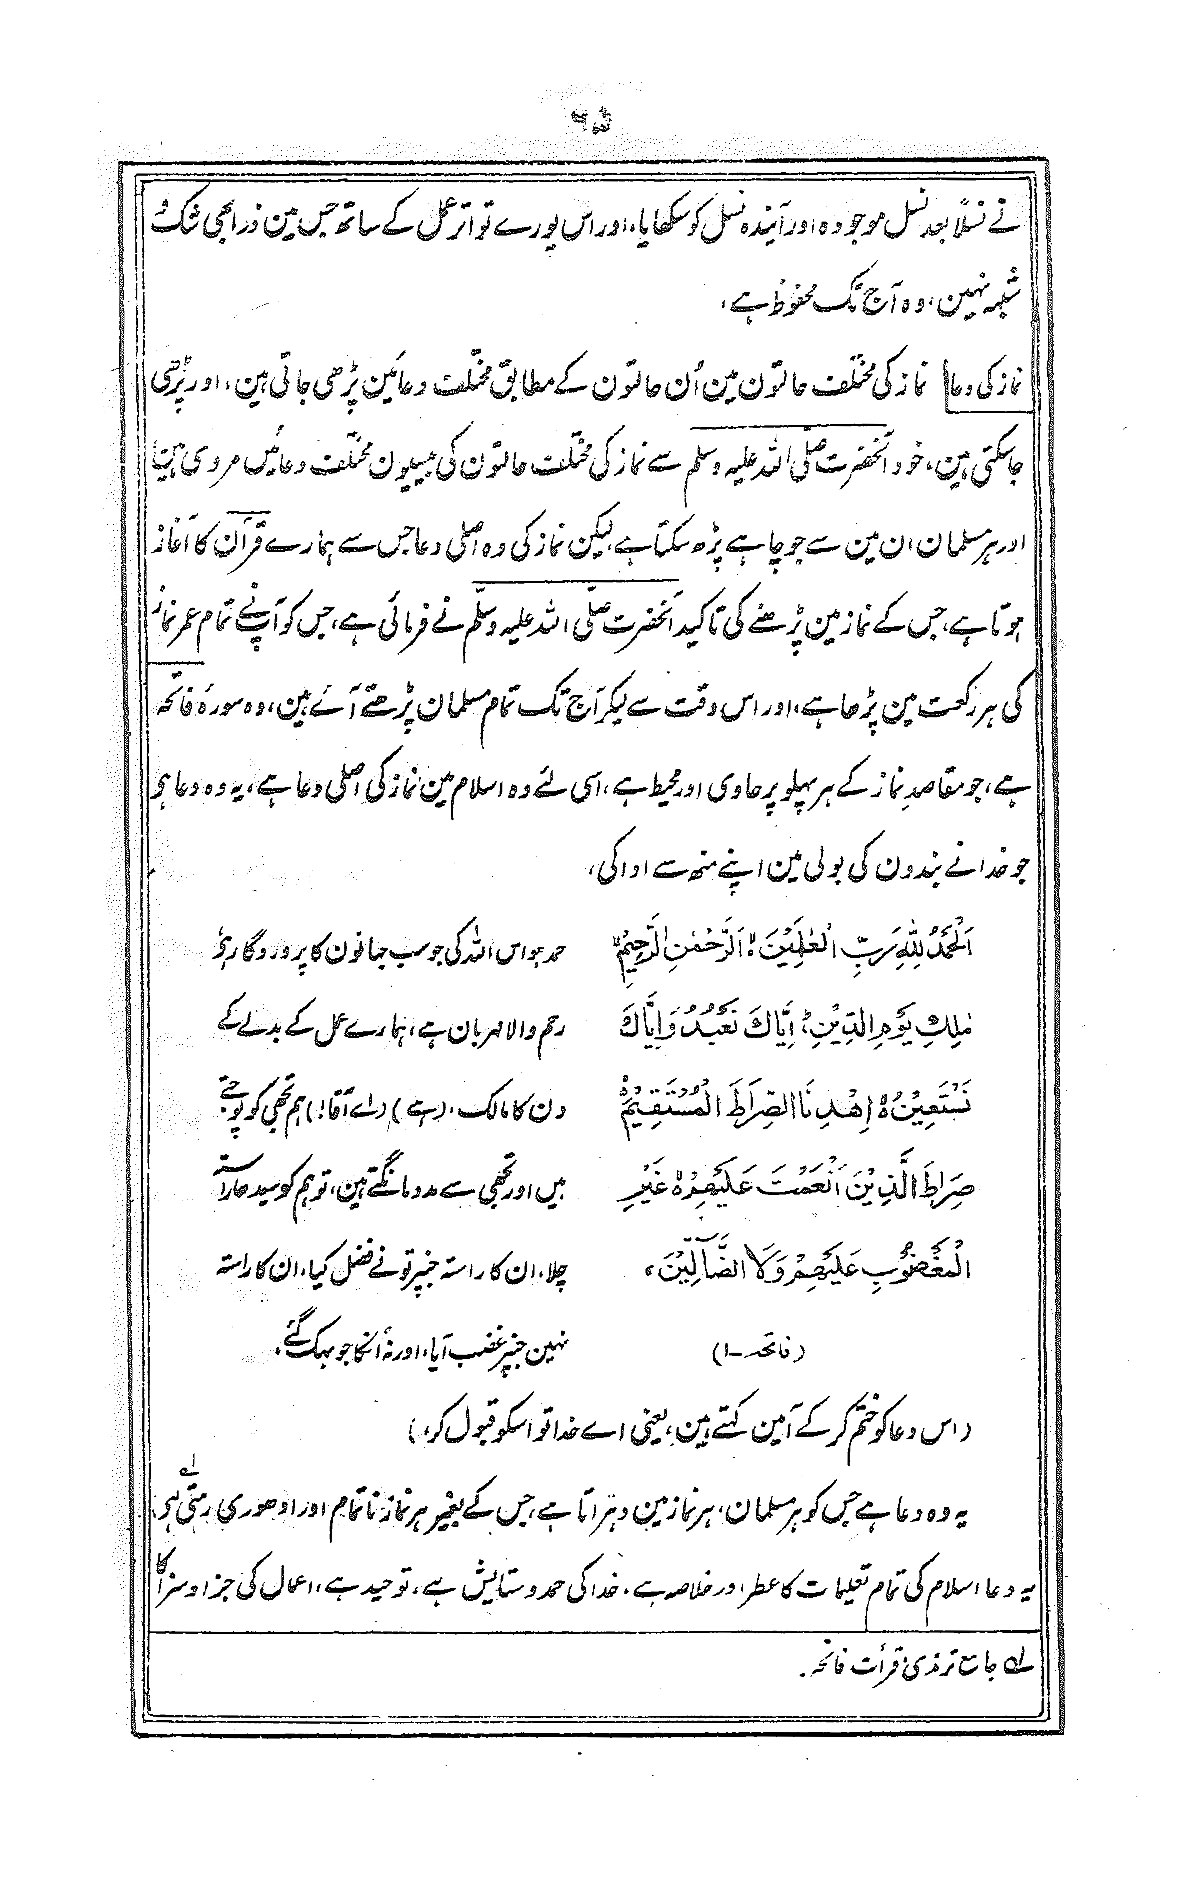 ۹۵
نے نسلًا بعد نسل موجودہ اور آیندہ نسل کو سکھایا، اور اس پورے تواتر عمل کے ساتھ جس مین ذرا بھی شک و
شبہہ نہین، وہ آج تک محفوظ ہے،
نماز کی دعا نماز کی مختلف حالتون مین اُن حالتون کے مطابق مختلف دعائین پڑھی جاتی ہین، اور پڑھی
جا سکتی ہین، خود آنحضرت صلی اللہ علیہ وسلم سے نماز کی مختلف حالتون کی بیسیون مختلف دعائین مروی ہین
اور ہر مسلمان ان مین سے جو چاہے پڑھ سکتا ہے، لیکن نماز کی وہ اصلی دعا جس سے ہمارے قرآن کا آغاز
ہوتا ہے، جس کے نماز مین پڑھنے کی تاکید آنحضرت صلی اللہ علیہ وسلم نے فرمائی ہے، جس کو آپنے تمام عمر نماز
کی ہر رکعت مین پڑھا ہے، اور اس وقت سے لیکر آج تک تمام مسلمان پڑھتے آئے ہین، وہ سورۂ فاتحہ
ہے، جو مقاصدِ نماز کے ہر پہلو پر حاوی اور محیط ہے، اسی لئے وہ اسلام مین نماز کی اصلی دعا ہے، یہ وہ دعا ہو
جو خدا نے بندون کی بولی مین اپنے منھ سے ادا کی،
اَلْحَمْدُ لِلّٰهِ رَبِّ الْعٰلَمِيْنَ، اَلرَّحْمٰنِ الرَّحِيْمِ، حمد ہو اس اللہ کی جو سب جہانون کا پروردگار ہو
مٰلِكِ يَوْمِ الدِّيْنِ، اِيَّاكَ نَعْبُدُ وَاِيَّاكَ رحم والا مہربان ہے، ہمارے عمل کے بدلے کے
نَسْتَعِيْنُ ہ اِهْدِنَا الصِّرَاطَ الْمُسْتَقِيْمَ ہ دن کا مالک، (ہے) (اے آقا!) ہم تجھی کو پوجتے
صِرَاطَ الَّذِيْنَ اَنْعَمْتَ عَلَيْهِمْ ہ غَيْرِ ہیں اور تجھی سے مدد مانگتے ہین، تو ہم کو سیدھا راستہ
الْمَغْضُوْبِ عَلَيْهِمْ وَلَا الضَّآلِّيْنَ، چلا، ان کا راستہ جنپر تو نے فضل کیا، ان کا راستہ
(فاتحہ-۱) نہین جنپر غضب آیا، اور نہ انکا جو بہک گئے،
(اس دعا کو ختم کر کے آمین کہتے ہین، یعنی اے خدا تو اسکو قبول کر،)
یہ وہ دعا ہے جس کو ہر مسلمان، ہر نماز مین دہراتا ہے، جس کے بغیر ہر نماز ناتمام اور ادھوری رہتی ہی، لہ
یہ دعا اسلام کی تمام تعلیمات کا عطر اور خلاصہ ہے، خدا کی حمد و ستایش ہے، توحید ہے، اعمال کی جزا و سزا کا
لہ جامع ترمذی قرأت فاتحہ.